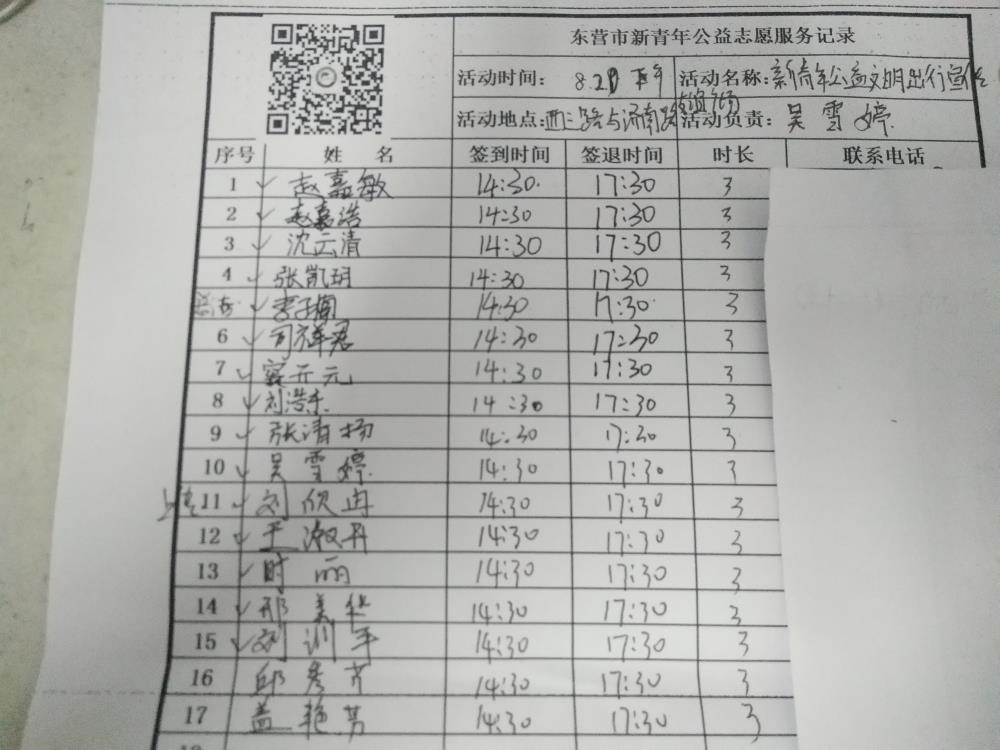 东营市新青年公益志愿服务记录
活动时间: 8.21 下午 活动名称:新青年公益文明出行宣
活动地点:西二路与济南路 活动负责: 吴雪婷
序号 姓名 签到时间 签退时间 时长 联系电话
1 赵嘉敏 14:30 17:30 3
2 赵嘉浩 14:30 17:30 3
3 沈云清 14:30 17:30 3
4 张凯玥 14:30 17:30 3
李子楠 14:30 17:30 3
6 司祥君 14:30 17:30 3
7 窦开元 14:30 17:30 3
8 刘浩东 14:30 17:30 3
9 张清扬 14:30 17:30 3
10 吴雪婷 14:30 17:30 3
11 刘欣冉 14:30 17:30 3
12 王淑丹 14:30 17:30 3
13 时丽 14:30 17:30 3
14 邢美华 14:30 17:30 3
15 刘训平 14:30 17:30 3
16 邱秀芹 14:30 17:30 3
17 盖艳芳 14:30 17:30 3